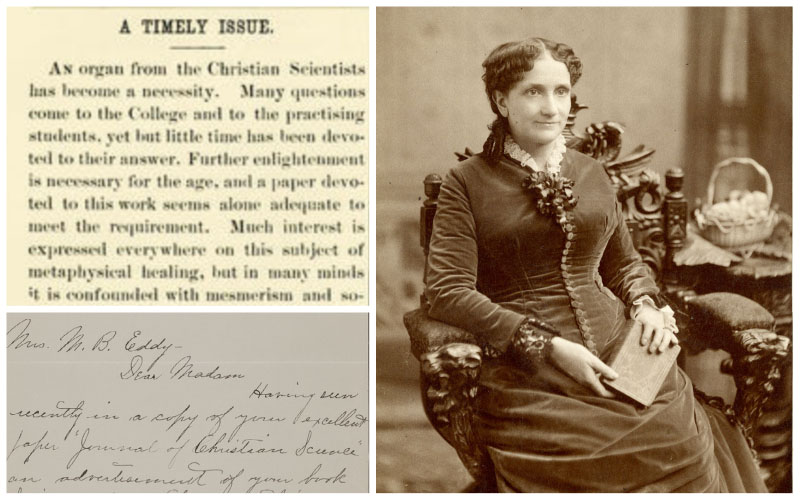 A TIMELY ISSUE.
An organ from the Christian Scientists
has become a necessity. Many questions
come to the College and to the practising
students, yet but little time has been devo-
ted to their answer. Further enlightenment
is necessary for the age, and a paper devo-
ted to this work seems alone adequate to
meet the requirement. Much interest is
expressed everywhere on this subject of
metaphysical healing, but in many minds
it is confounded with mesmerism and so-
Mrs. M. B. Eddy-
Dear Madam
Having seen
recently in a copy of your excellent
paper "Journal of Christian Science"
an advertisement of your book